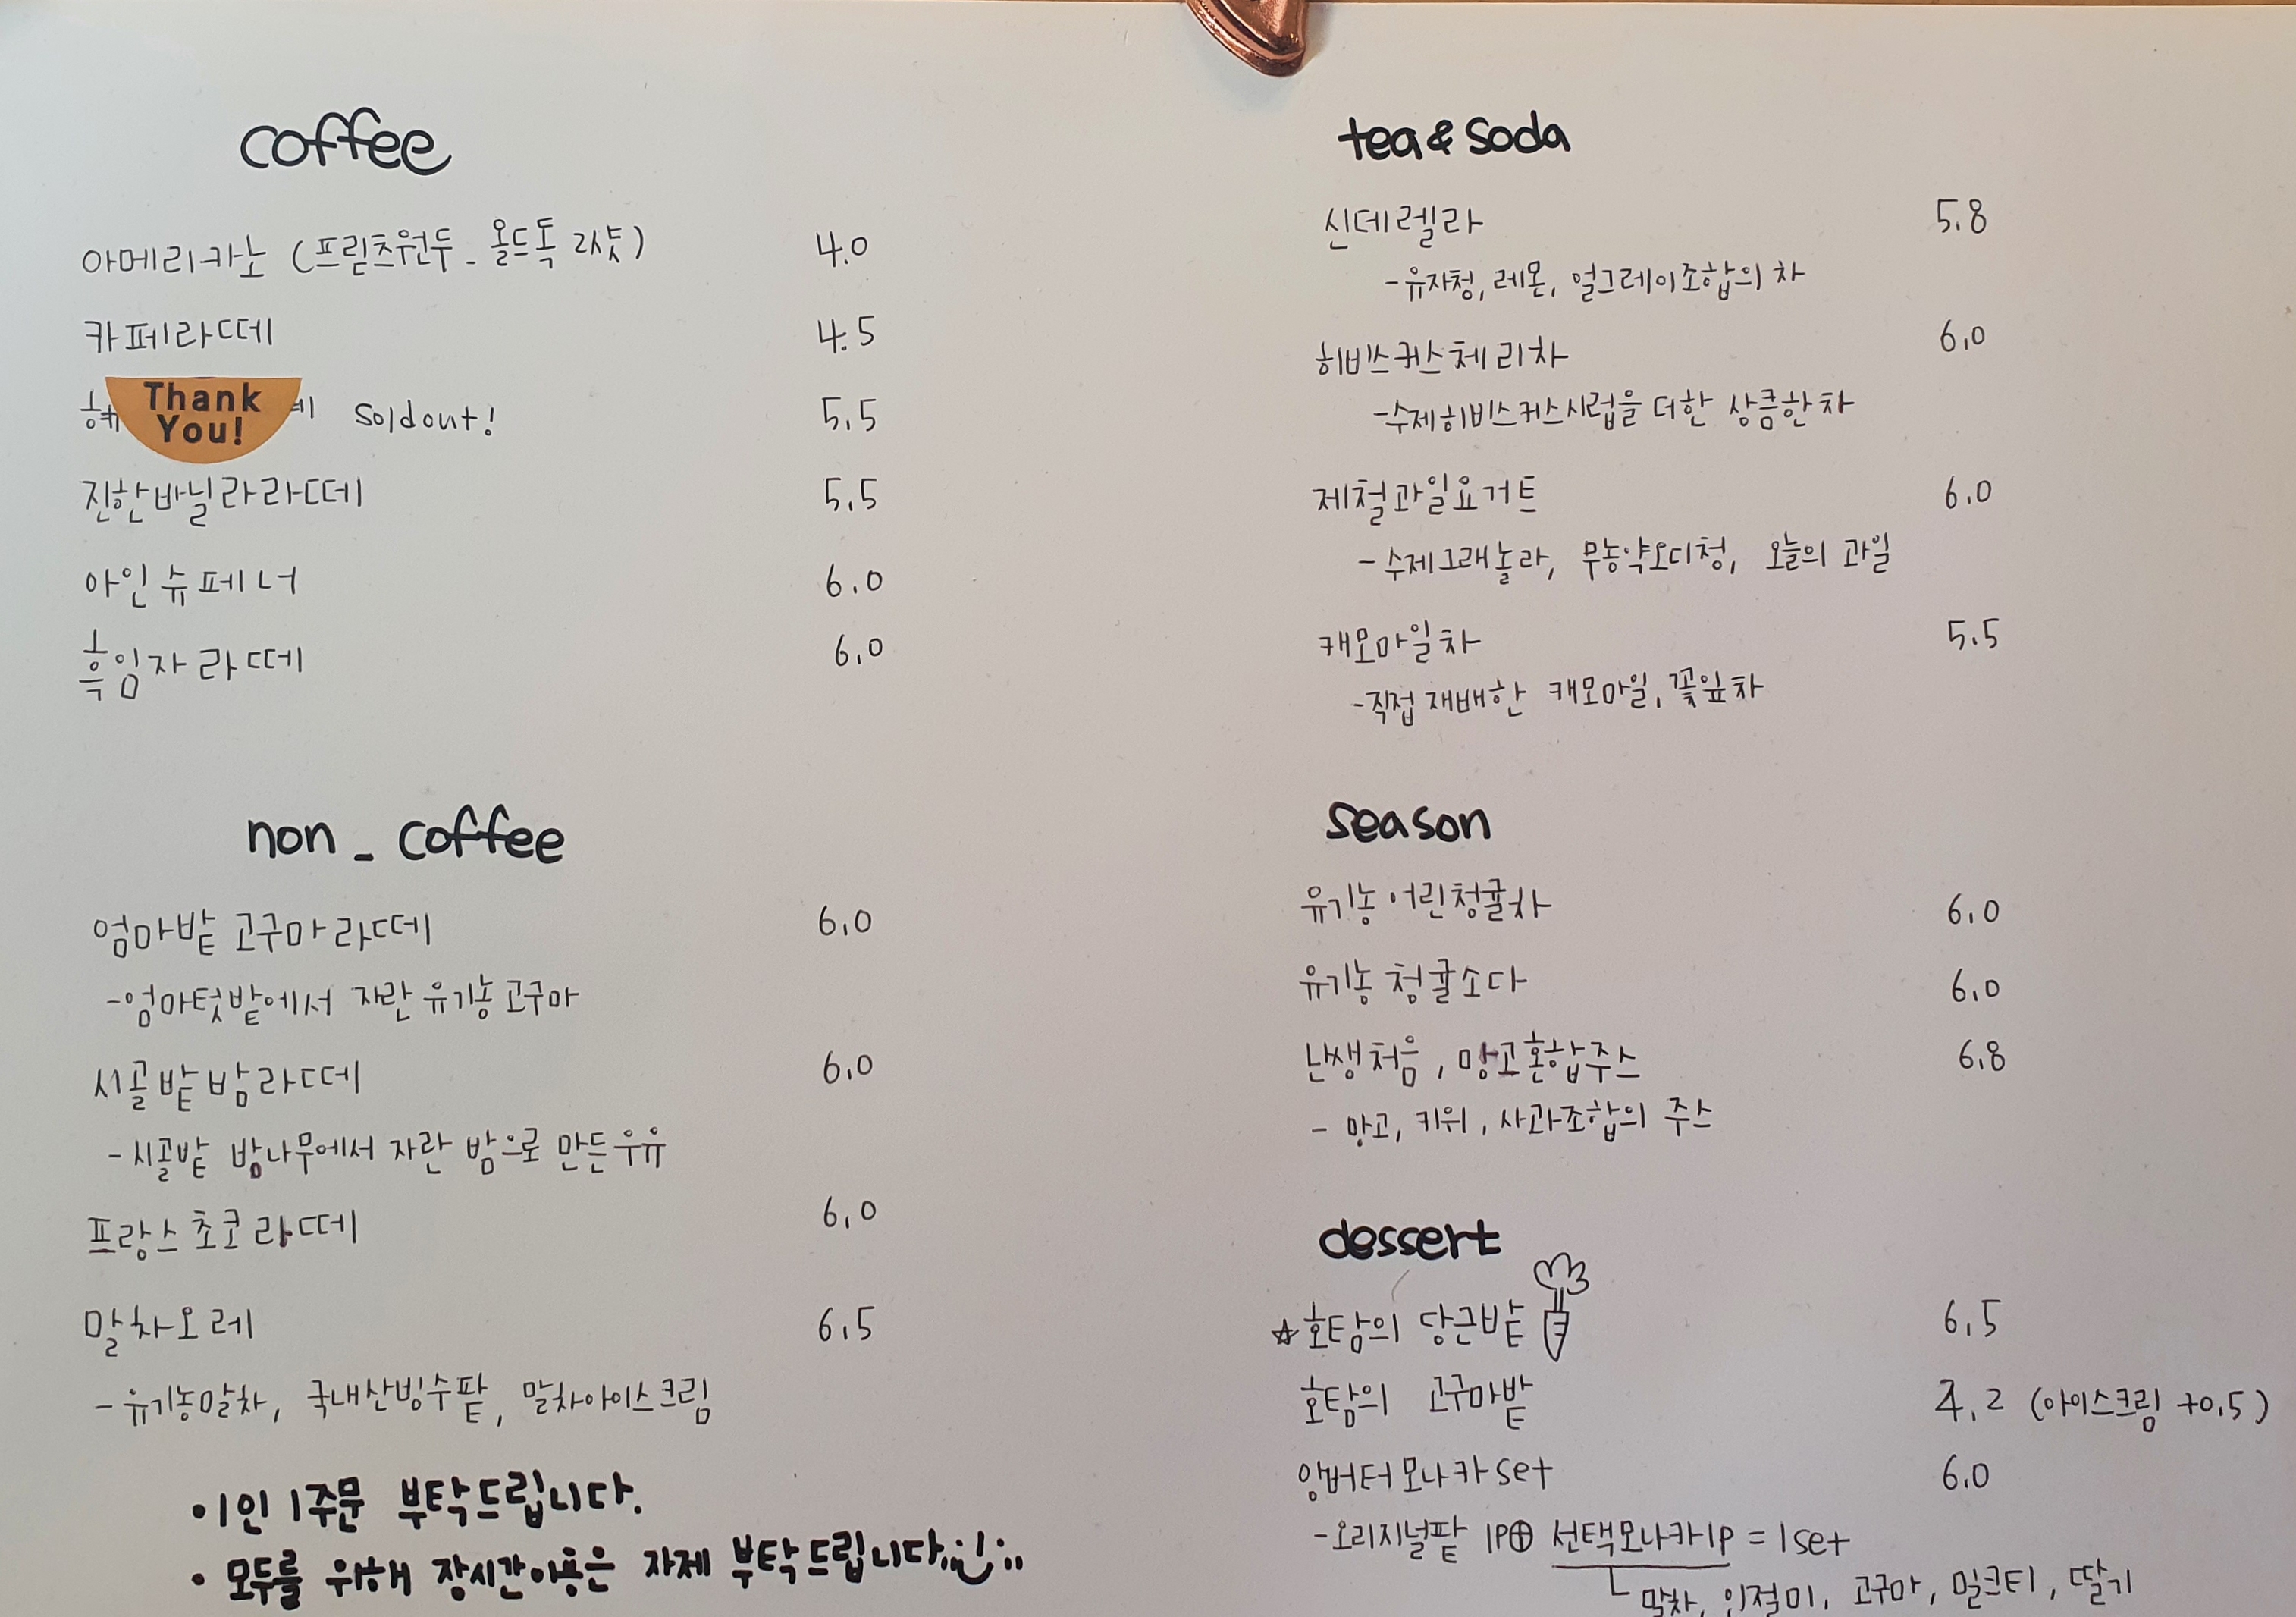 coffee
아메리카노 (프릳츠원두_올드독 2샷) 4.0
카페라떼 4.5
Thank
You!
soldout! 5.5
진한바닐라라떼 5.5
아인슈페너 6.0
흑임자라떼 6.0
non_coffee
엄마밭 고구마라떼 6.0
-엄마텃밭에서 자란 유기농고구마
시골밭밤라떼 6.0
-시골밭 밤나무에서 자란 밤으로 만든우유
프랑스초코라떼 6.0
말차오레 6.5
-유기농말차, 국내산빙수팥, 말차아이스크림
•1인 1주문 부탁드립니다.
• 모두를 위해 장시간이용은 자제 부탁드립니다.
tea & soda
신데렐라 5.8
-유자청, 레몬, 얼그레이조합의 차
히비스커스체리차 6.0
-수제히비스커스시럽을 더한 상큼한차
제철과일요거트 6.0
-수제그래놀라, 무농약오디청, 오늘의 과일
캐모마일차 5.5
-직접재배한 캐모마일, 꽃잎차
season
유기농 어린청귤차 6.0
유기농 청귤소다 6.0
난생처음, 망고혼합주스 6.8
- 망고, 키위, 사과조합의 주스
dessert
☆호탐의 당근밭 6.5
호탐의 고구마밭 4.2 (아이스크림 +0.5)
앙버터모나카set 6.0
-오리지널팥 1P⊕ 선택모나카1P = 1set
말차, 인절미, 고구마, 밀크티, 딸기